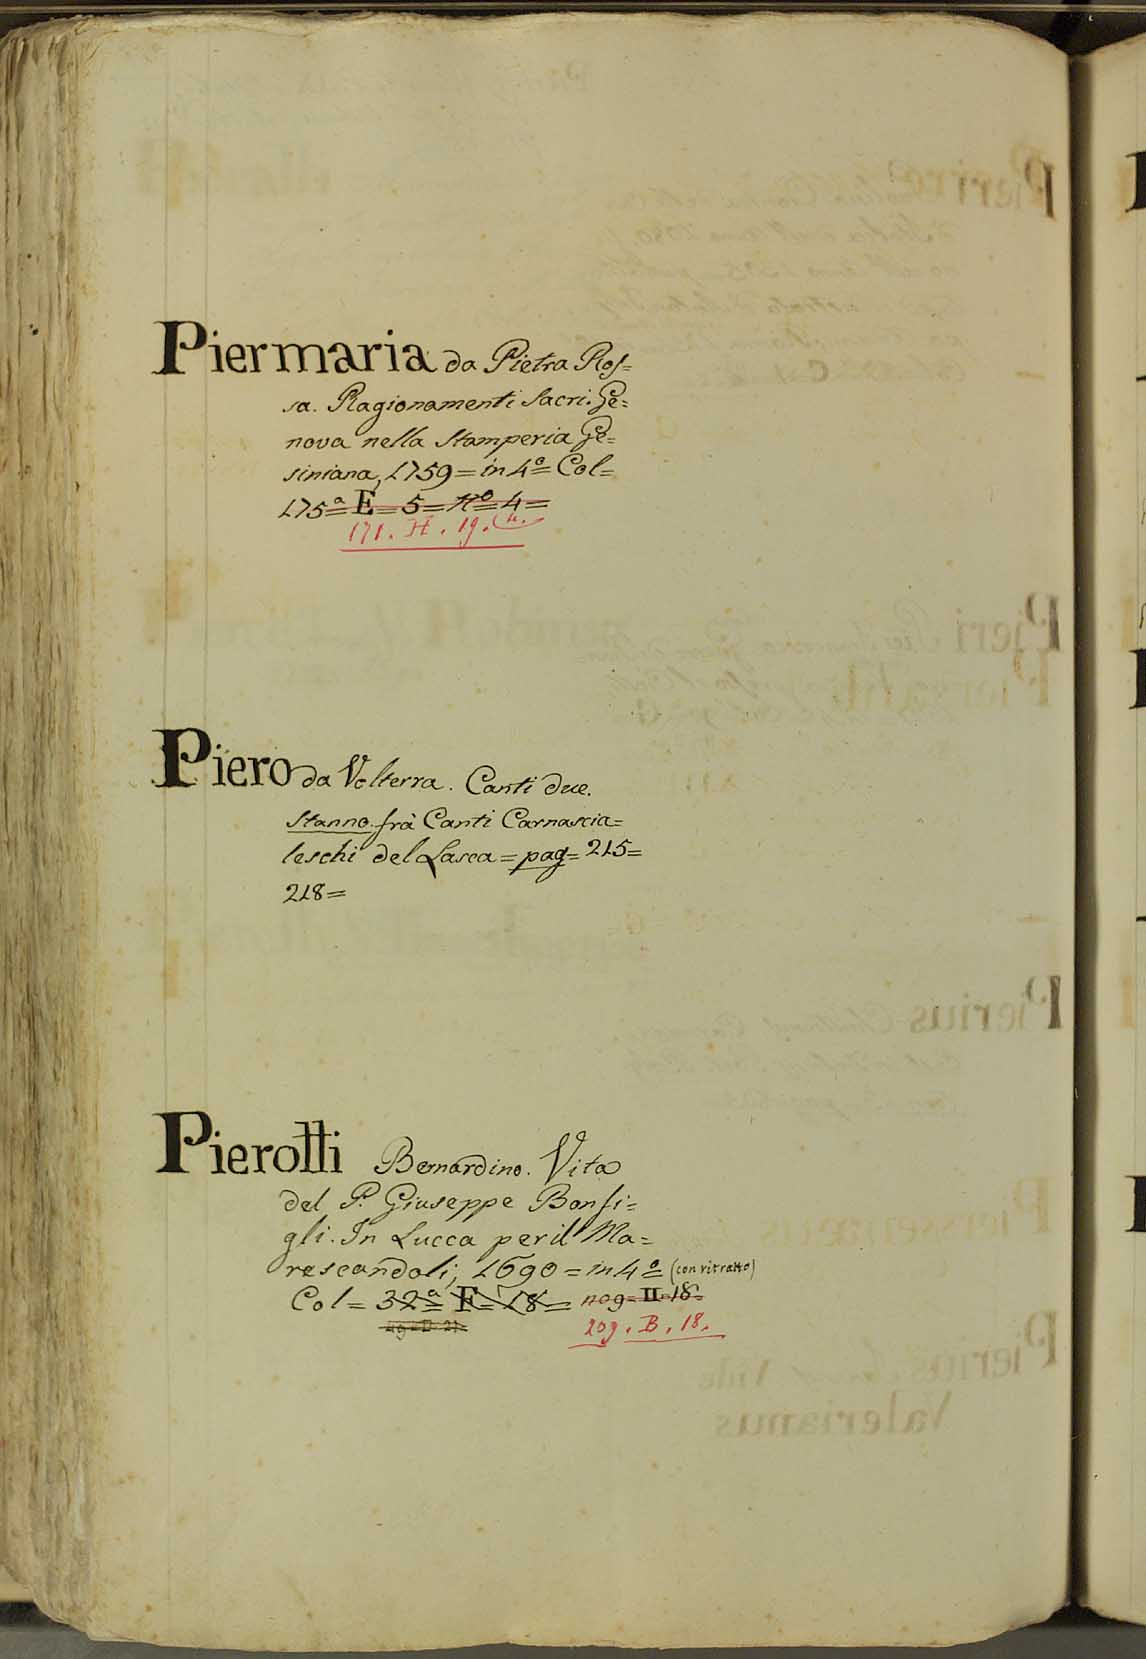 Piermaria da Pietra Ros=
sa. Ragionamenti Sacri. Ge=
nova nella Stamperia Ge=
siniana, 1759 = in 4º Col=
175ª E = 5 = nº 4 =
171. H. 19. (4.
Piero da Volterra. Canti due.
stanno frà Canti Carnascia=
leschi del Lasca = pag = 215=
218=
Pierotti Bernardino. Vita
del P. Giuseppe Bonfi=
gli. In Lucca per il Ma=
rescandoli, 1690 = in 4º (con ritratto)
Col = 32ª F = 18 = nog = II = 18=
209. B. 18.